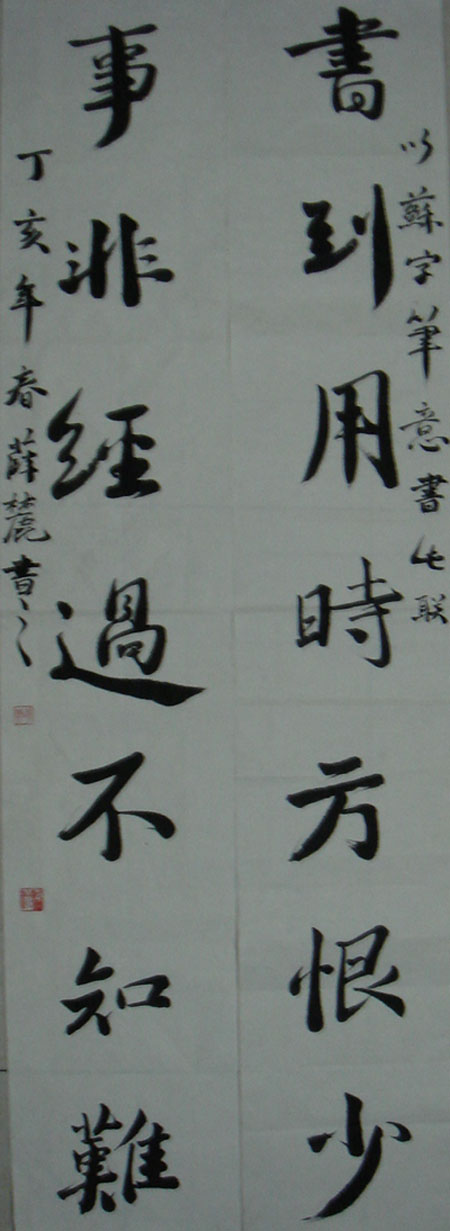 以蘇字筆意書此联
書到用時方恨少
事非經過不知難
丁亥年春薛麓書之